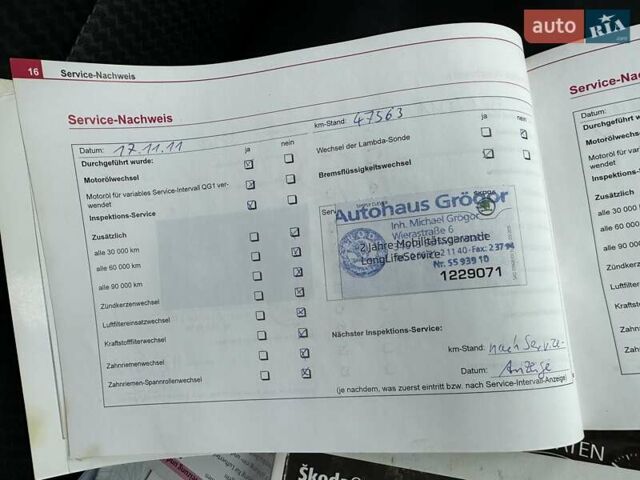 auto RIA.com
16 Service-Nachweis
Service-Nachweis
Datum: 17.11.11 ja nein
Durchgeführt wurde:
Motorölwechsel
Motoröl für variables Service-Intervall QG1 ver-
wendet
Inspektions-Service
Zusätzlich
alle 30 000 km
alle 60 000 km
alle 90 000 km
Zündkerzenwechsel
Luftfiltereinsatzwechsel
Kraftstofffilterwechsel
Zahnriemenwechsel
Zahnriemen-Spannrollenwechsel
km-Stand: 47563 ja nein
Wechsel der Lambda-Sonde
Bremsflüssigkeitswechsel
Autohaus Grögor
Inh. Michael Grögor
Wierastraße 6
2 Jahre Mobilitätsgarantie
LongLifeService
Nr. 55 939 10
1229071
Nächster Inspektions-Service:
km-Stand: nach Service-
Datum: Anzeige
(je nachdem, was zuerst eintritt bzw. nach Service-Intervall-Anzeige)
Service-Nach
Datum:
Durchgeführt wurde:
Motorölwechsel
Motoröl für variables
wendet
Inspektions-Service
Zusätzlich
alle 30 000 km
alle 60 000 km
alle 90 000 km
Škoda